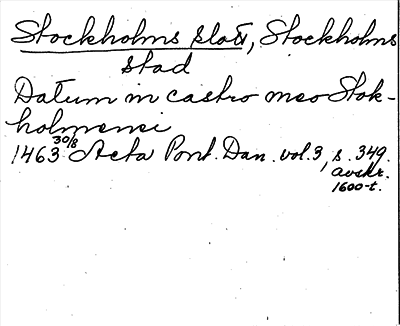 Stockholms slott, Stockholms
stad
Datum in castro meo Stok-
holmensi
1463 30/8 Acta Pont. Dan. vol. 3, s. 349.
avskr.
1600-t.